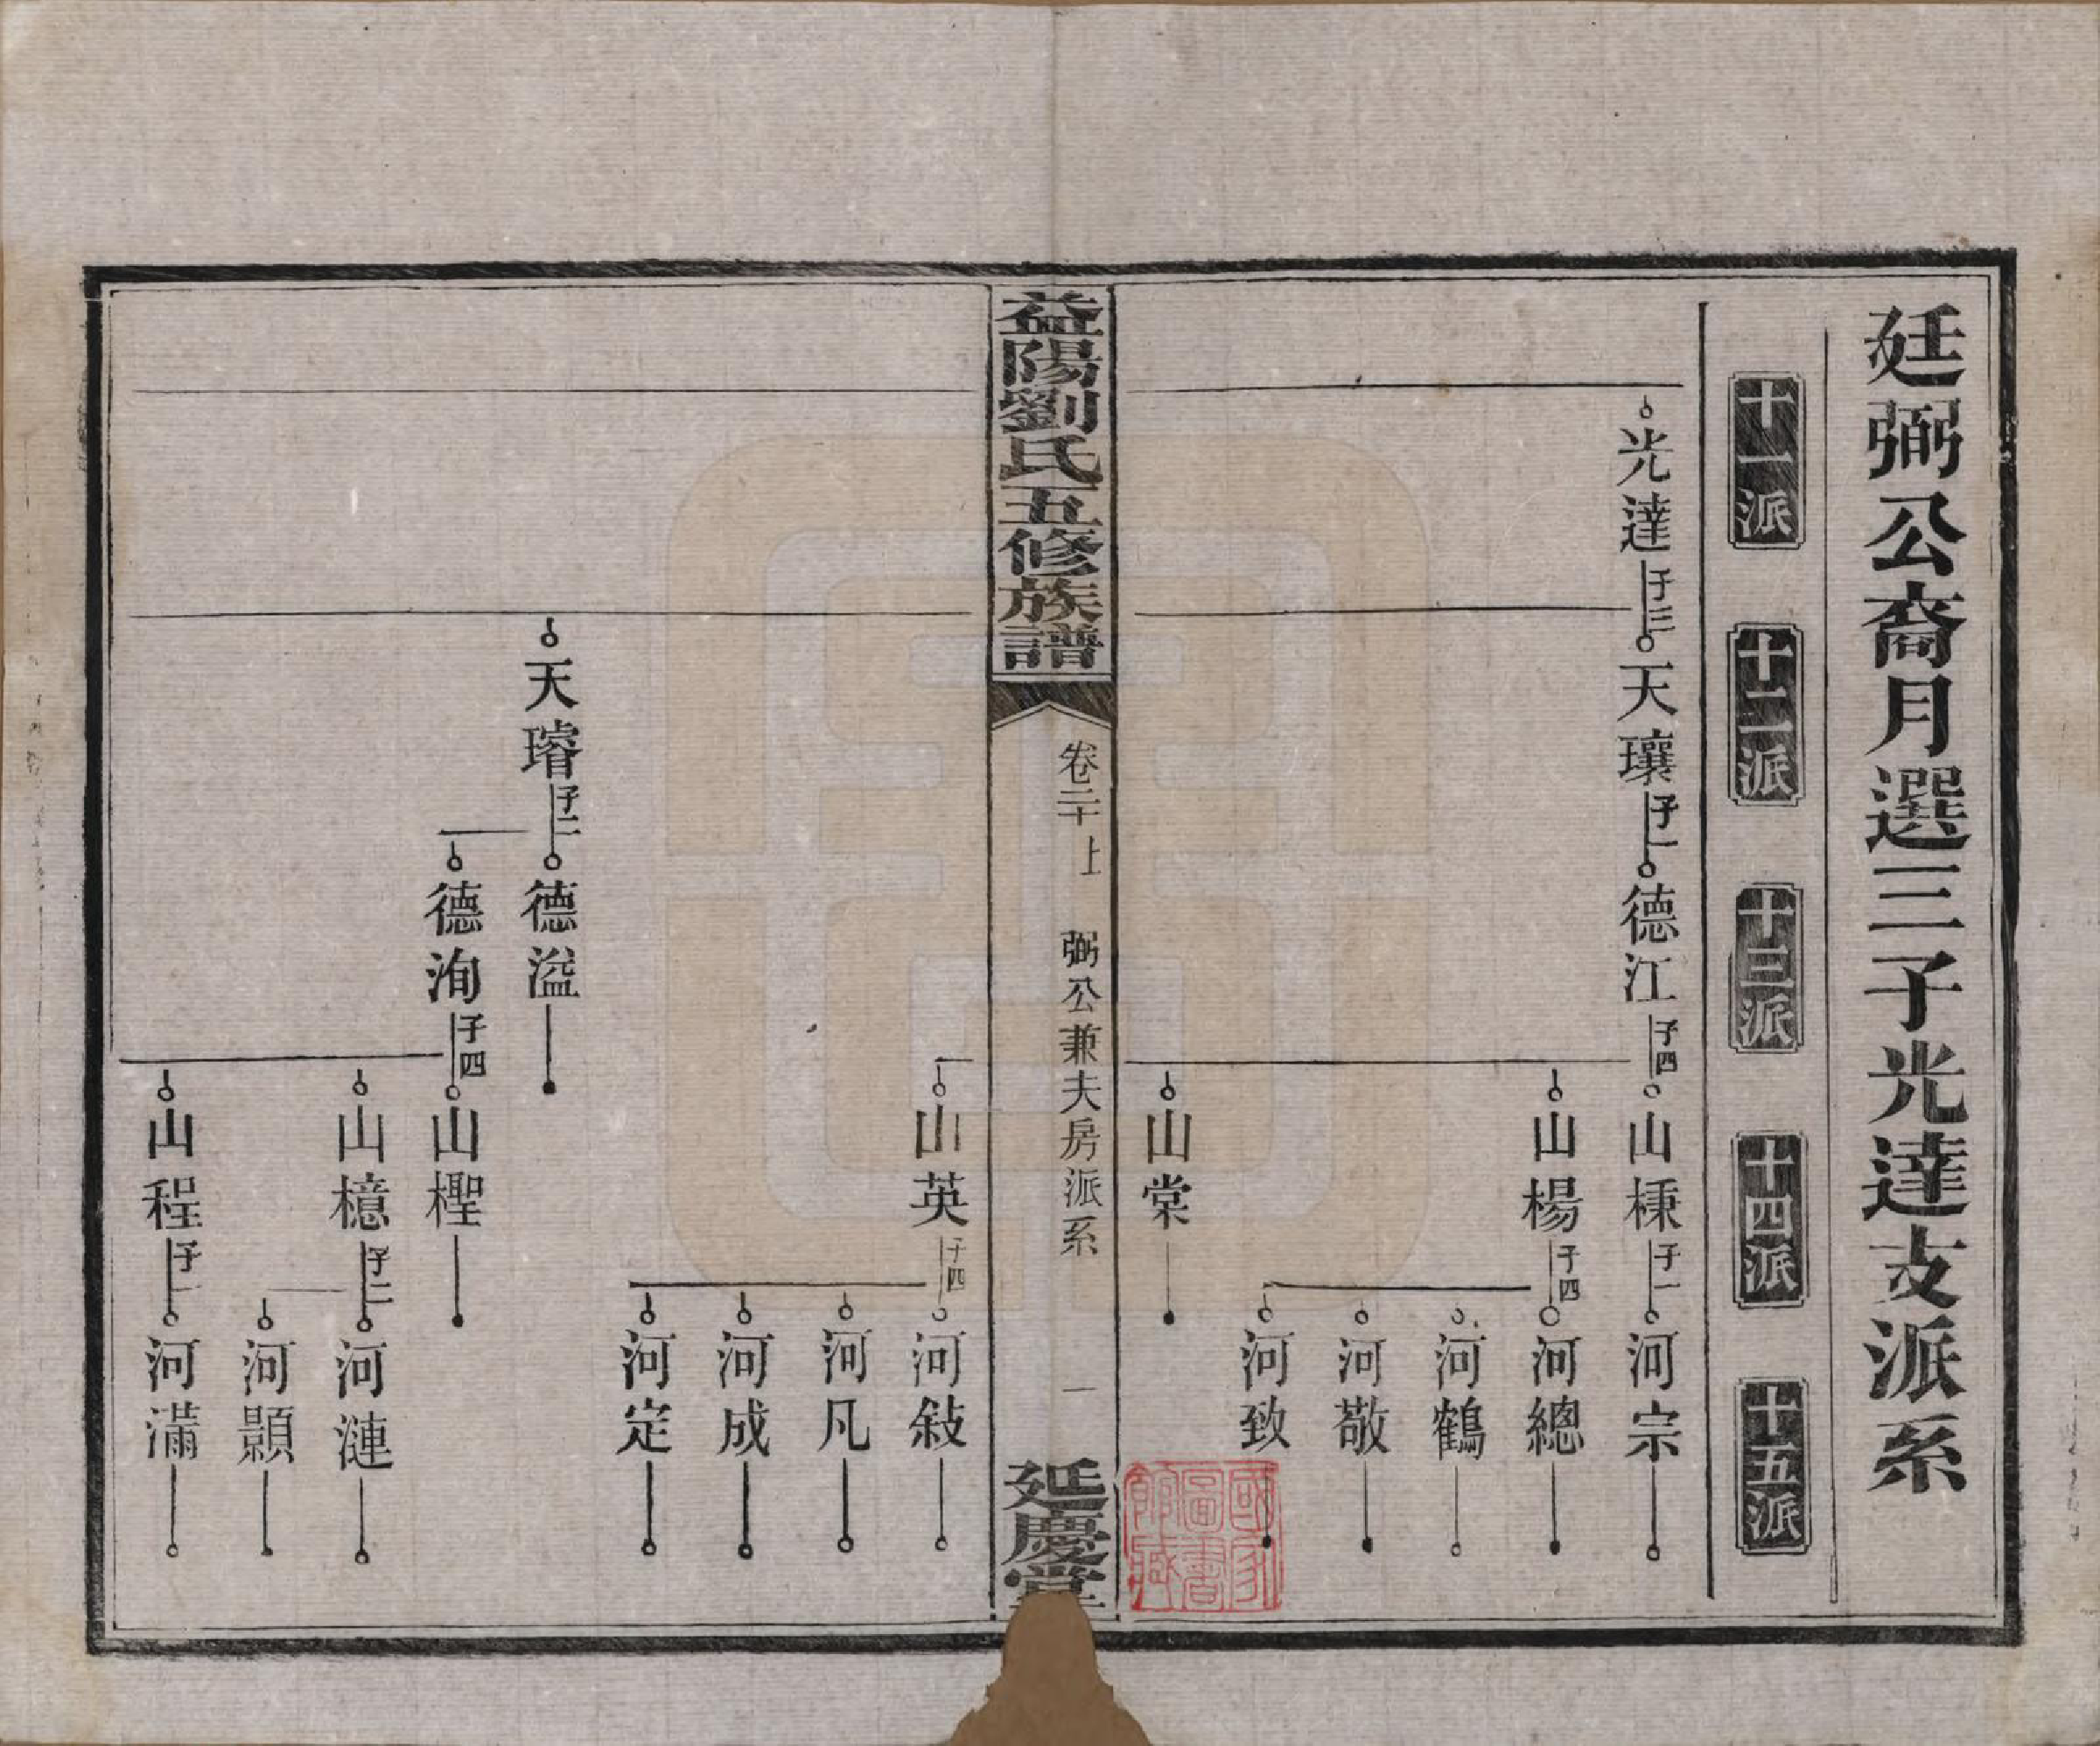 廷弼公裔月選三子光達支派系
十一派
十二派
十三派
十四派
十五派
光達子三
天瓖子一
德江子四
山秉子一
河宗
山楊子四
河總
河鶴
河敬
河致
山棠
益陽劉氏五修族譜
卷二十上
弼公兼夫房派系
一
延慶堂
國家圖書館藏
山英子四
河敍
河凡
河成
河定
天璿子二
德溢
德洵子四
山檉
山檍子二
河漣
河顥
山程子一
河滿